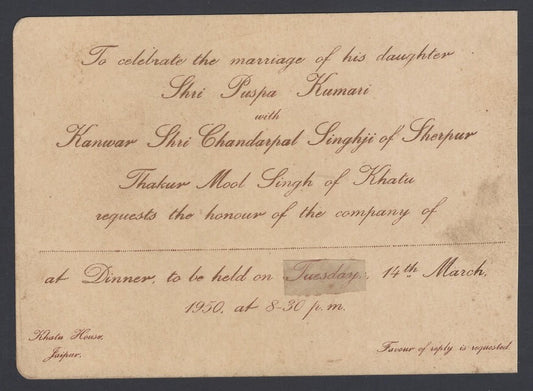 To celebrate the marriage of his daughter
Shri Puspa Kumari
with
Kanwar Shri Chandarpal Singhji of Sherpur
Thakur Mool Singh of Khatu
requests the honour of the company of
at Dinner, to be held on Tuesday, 14th March,
1950, at 8-30 p.m.
Khatu House,
Jaipur.
Favour of reply is requested.